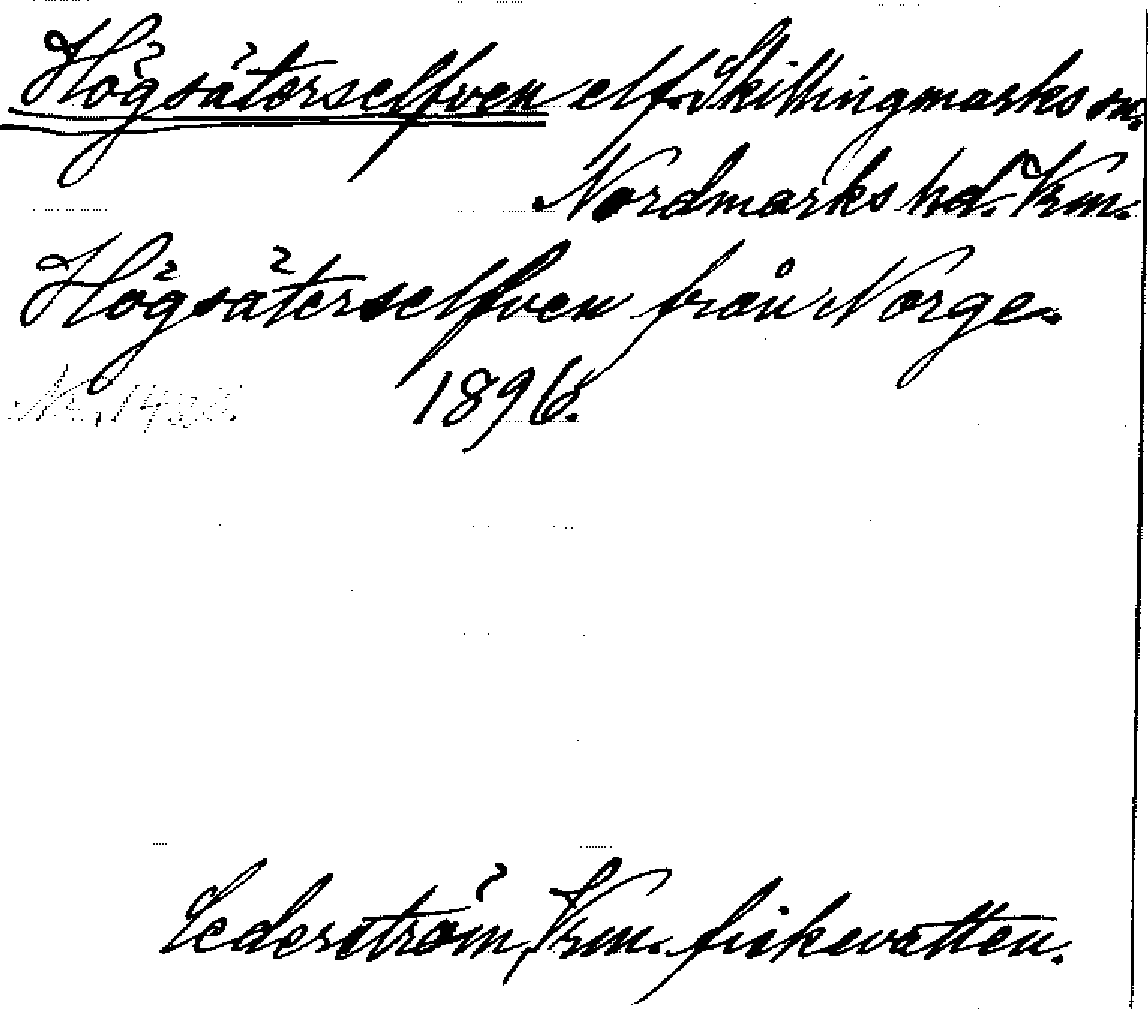 Högsäterselfven elf. Skillingmarks sn.
Nordmarks hd. Vrm.
Högsäterselfven från Norge.
1896.
Cederström, Vrm. fiskevatten.